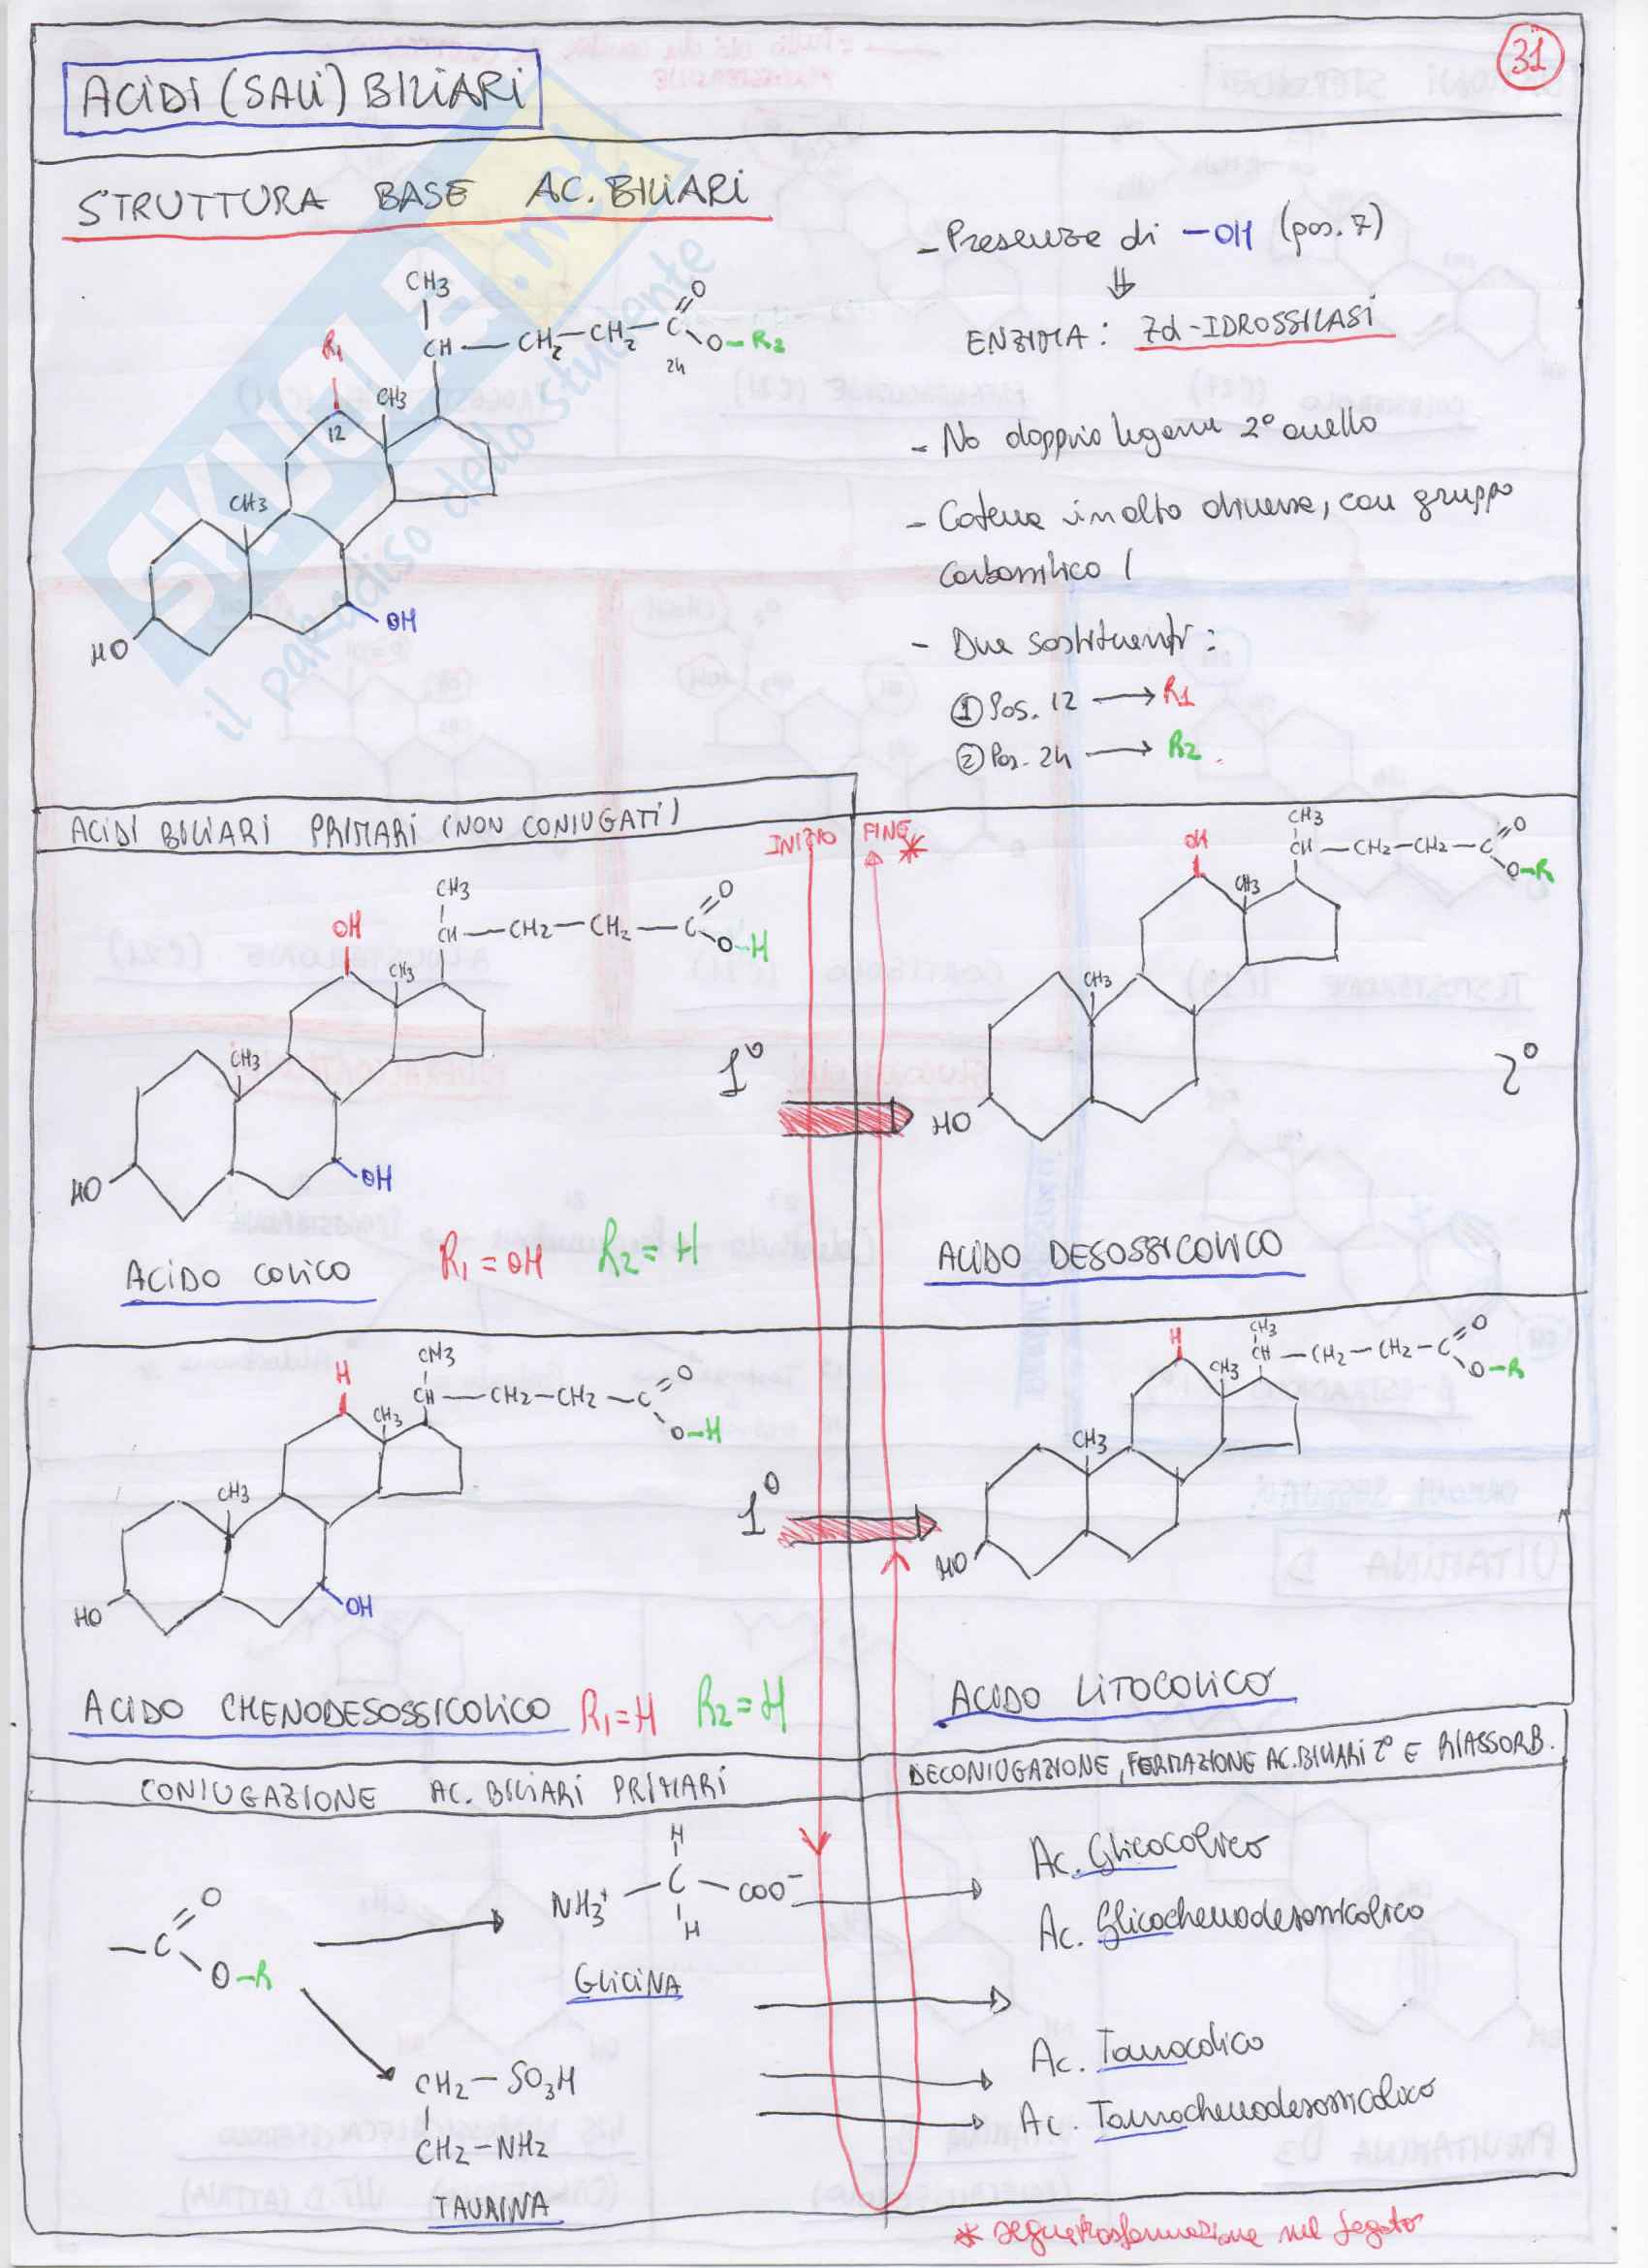 31
ACIDI (SALI) BILIARI
STRUTTURA BASE AC. BILIARI
CH3
CH — CH2 — CH2 — C
O
O — R2
24
R1
12
CH3
CH3
HO
OH
SKUOLA.net
il paradiso dello studente
- Presenza di -OH (pos. 7)
⇓
ENZIMA: 7α-IDROSSILASI
- No doppio legame 2° anello
- Catena in alto diversa, con gruppo
carbossilico
- Due sostituenti:
① Pos. 12 → R1
② Pos. 24 → R2
ACIDI BILIARI PRIMARI (NON CONIUGATI)
INIZIO
FINE *
CH3
CH — CH2 — CH2 — C
O
O-H
OH
CH3
CH3
HO
OH
1°
ACIDO COLICO
R1 = OH
R2 = H
CH3
CH — CH2 — CH2 — C
O
O-R
OH
CH3
CH3
HO
2°
ACIDO DESOSSICOLICO
CH3
CH — CH2 — CH2 — C
O
O-H
H
CH3
CH3
HO
OH
1°
ACIDO CHENODESOSSICOLICO
R1 = H
R2 = H
CH3
CH — CH2 — CH2 — C
O
O-R
H
CH3
CH3
HO
ACIDO LITOCOLICO
CONIUGAZIONE AC. BILIARI PRIMARI
DECONIUGAZIONE, FORMAZIONE AC. BILIARI 2° E RIASSORB.
— C
O
O-R
H
NH3+ — C — COO-
H
GLICINA
CH2 — SO3H
CH2 — NH2
TAURINA
Ac. Glicocolico
Ac. Glicochenodesossicolico
Ac. Taurocolico
Ac. Taurochenodesossicolico
* segue trasformazione nel fegato